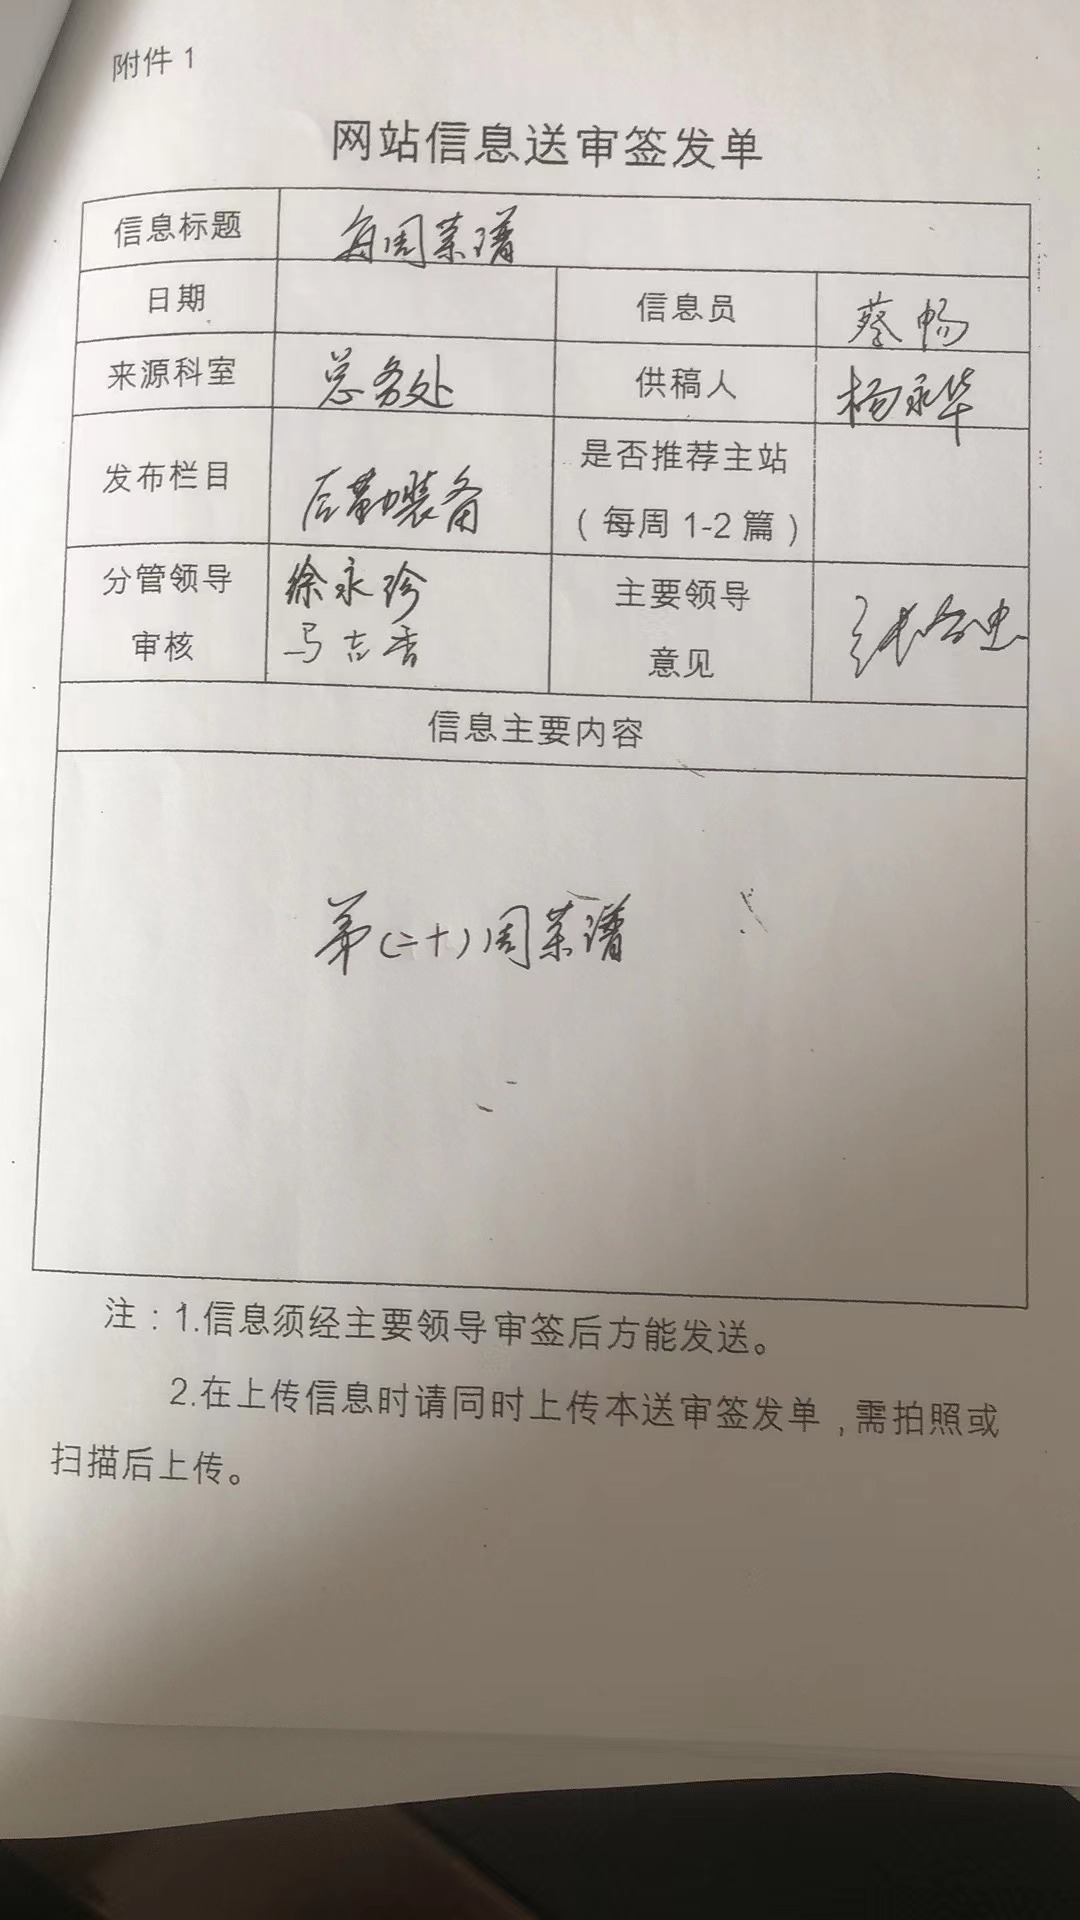 附件 1
网站信息送审签发单
信息标题 每周菜谱
日期 信息员 蔡畅
来源科室 总务处 供稿人 杨永华
发布栏目 后勤装备 是否推荐主站
（每周 1-2 篇）
分管领导 徐永珍 主要领导
审核 马吉香 意见
信息主要内容
第(二十)周菜谱
注：1.信息须经主要领导审签后方能发送。
2.在上传信息时请同时上传本送审签发单，需拍照或
扫描后上传。